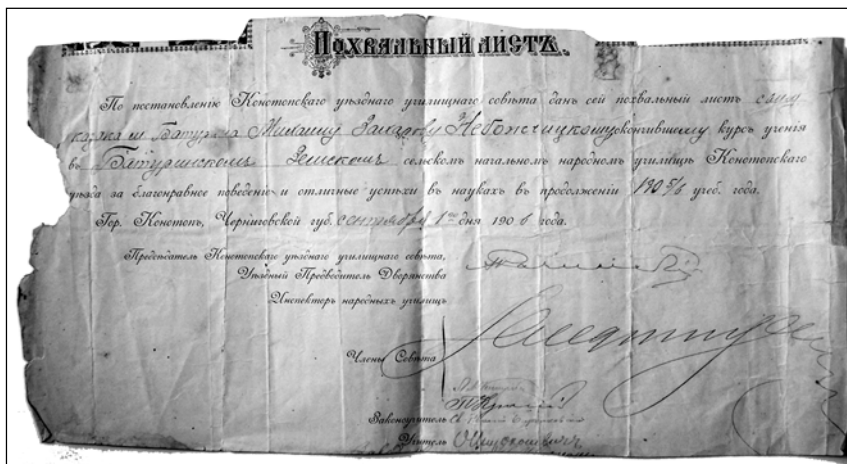 Похвальный листъ.
По постановленію Конотопскаго уѣзднаго училищнаго совѣта данъ сей похвальный листъ сыну
казака м. Батурина Михаилу Захарову Небожчицкому окончившему курсъ ученія
въ Батуринскомъ Земскомъ сельскомъ начальномъ народномъ училищѣ Конотопскаго
уѣзда за благонравное поведеніе и отличные успѣхи въ наукахъ въ продолженіи 1905/6 учеб. года.
Гор. Конотопъ, Черниговской губ. сентября 1го дня 1906 года.
Предсѣдатель Конотопскаго уѣзднаго училищнаго совѣта,
Уѣздный Предводитель Дворянства
Инспекторъ народныхъ училищъ
Члены Совѣта
Законоучитель
Учитель